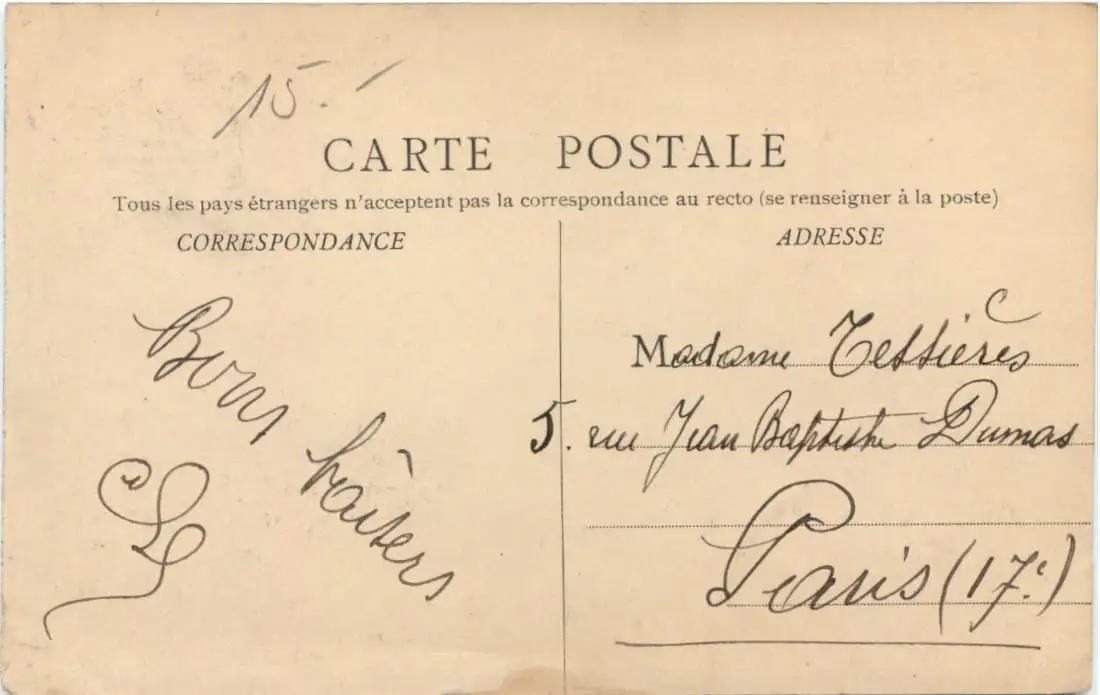 15.
CARTE POSTALE
Tous les pays étrangers n'acceptent pas la correspondance au recto (se renseigner à la poste)
CORRESPONDANCE
Bons
baisers
ADRESSE
Madame Tessières
5. rue Jean Baptiste Dumas
Paris (17e)